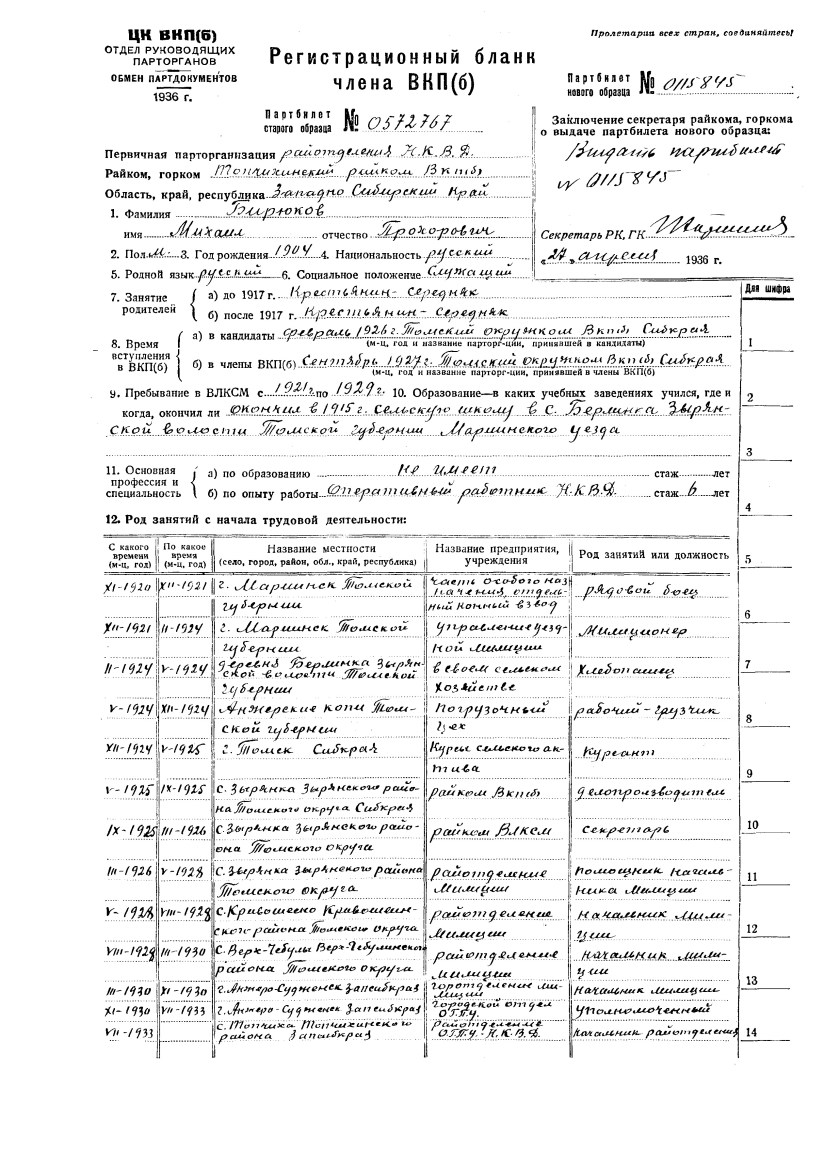 ЦК ВКП(б)
ОТДЕЛ РУКОВОДЯЩИХ
ПАРТОРГАНОВ
ОБМЕН ПАРТДОКУМЕНТОВ
1936 г.
Пролетарии всех стран, соединяйтесь!
Регистрационный бланк
члена ВКП(б)
Партбилет
старого образца № 0572767
Партбилет
нового образца № 0115845
Заключение секретаря райкома, горкома
о выдаче партбилета нового образца:
Выдать партбилет
№ 0115845
Секретарь РК, ГК
"27" апреля 1936 г.
Первичная парторганизация райотделения Н.К.В.Д.
Райком, горком Топчихинский райком Вкпб
Область, край, республика Западно Сибирский Край
1. Фамилия Бирюков
имя Михаил отчество Прохорович
2. Пол м. 3. Год рождения 1904 4. Национальность русский
5. Родной язык русский 6. Социальное положение Служащий
7. Занятие родителей
а) до 1917 г. Крестьянин - середняк
б) после 1917 г. Крестьянин - середняк
8. Время вступления в ВКП(б)
а) в кандидаты февраль 1926 г. Томский окружком Вкпб Сибкрая
(м-ц, год и название парторг-ции, принявшей в кандидаты)
б) в члены ВКП(б) Сентябрь 1927 г. Томский окружком Вкпб Сибкрая
(м-ц, год и название парторг-ции, принявшей в члены ВКП(б)
9. Пребывание в ВЛКСМ с 1921 г. по 1929 г. 10. Образование—в каких учебных заведениях учился, где и
когда, окончил ли окончил в 1915 г. сельскую школу в с. Берлинга Зырян-
ской волости Томской губернии Мариинского уезда
11. Основная профессия и специальность
а) по образованию не имеет стаж лет
б) по опыту работы Оперативный работник Н.К.В.Д. стаж 6 лет
12. Род занятий с начала трудовой деятельности:
Для шифра
1
2
3
4
5
6
7
8
9
10
11
12
13
14
С какого времени (м-ц, год) По какое время (м-ц, год) Название местности (село, город, район, обл., край, республика) Название предприятия, учреждения Род занятий или должность
XI-1920 XII-1921 г. Мариинск Томской часть особого наз
начения, отдель-
губернии ный конный взвод рядовой боец
XII-1921 II-1924 г. Мариинск Томской Управление уезд- Милиционер
губернии ной милиции
II-1924 V-1924 деревня Берлинка Зырян- в своем сельском Хлебопашец
ской волости Томской
губернии хозяйстве
V-1924 XII-1924 Анжерские копи Том- Погрузочный рабочий - грузчик
ской губернии цех
XII-1924 V-1925 г. Томск Сибкрая Курсы сельского ак- Курсант
тива
V-1925 IX-1925 С. Зырянка Зырянского райо- райком Вкпб делопроизводитель
на Томского округа Сибкрая
IX-1925 III-1926 С. Зырянка Зырянского райо- райком Влксм секретарь
она Томского округа
III-1926 V-1928 С. Зырянка Зырянского района райотделение Помощник Началь-
Томского округа Милиции ника Милиции
V-1928 VIII-1928 С. Кривошеено Кривошеин- райотделение Начальник Мили-
ского района Томского округа Милиции ции
VIII-1928 III-1930 С. Верх-Чебулы Верх-Чебулинского райотделение Начальник мили-
района Томского округа Милиции ции
III-1930 XI-1930 г. Анжеро-Судженск Запсибкрая горотделение ми- Начальник милиции
лиции
XI-1930 VII-1933 г. Анжеро-Судженск Запсибкрая Городской отдел Уполномоченный
ОГПУ.
VII-1933 с. Топчиха Топчихинского Райотделение Начальник райотделения
района Запсибкрая ОГПУ. - Н.К.В.Д.